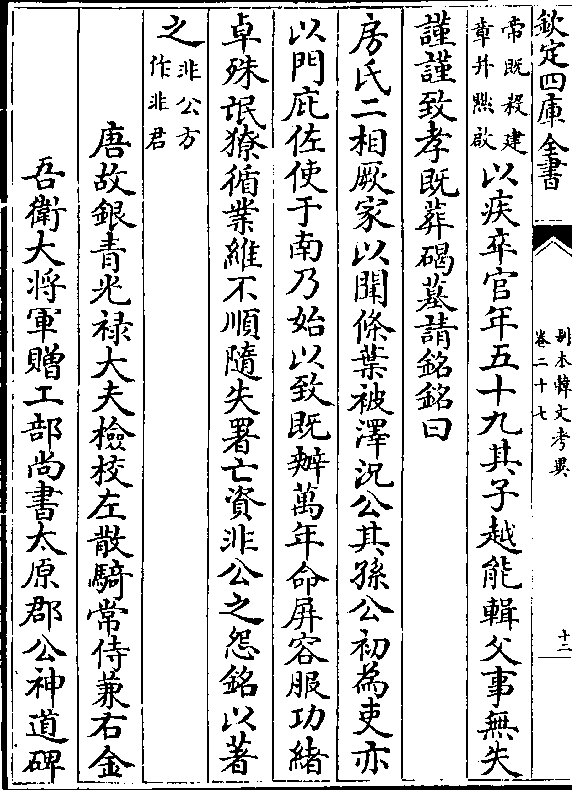 欽定四庫全書
别本韓文考異
卷二十七
十二
常既授建
章并㸃啟
以疾卒官年五十九其子越能輯父事無失
謹謹致孝既葬碣墓請銘銘曰
房氏二相厥家以聞條葉被澤況公其孫公初為吏亦
以門庇佐使于南乃始以致既辦萬年命屏容服功緒
卓殊氓獠循業維不順隨失署亡資非公之怨銘以著
之
非公方
作非君
唐故銀青光禄大夫檢校左散騎常侍兼右金
吾衛大將軍贈工部尚書太原郡公神道碑